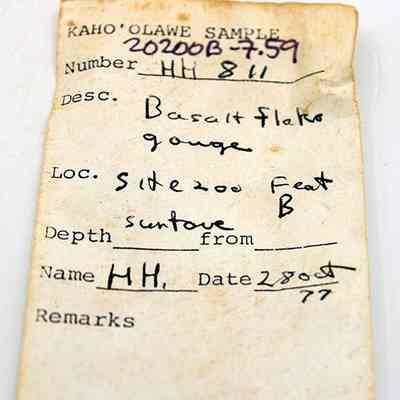 KAHO'OLAWE SAMPLE
20200B-7.59
Number HH 811
Desc. Basalt flake
gouge
Loc. Site 200 Feat
B
surface
Depth from
Name HH. Date 28 Oct
77
Remarks